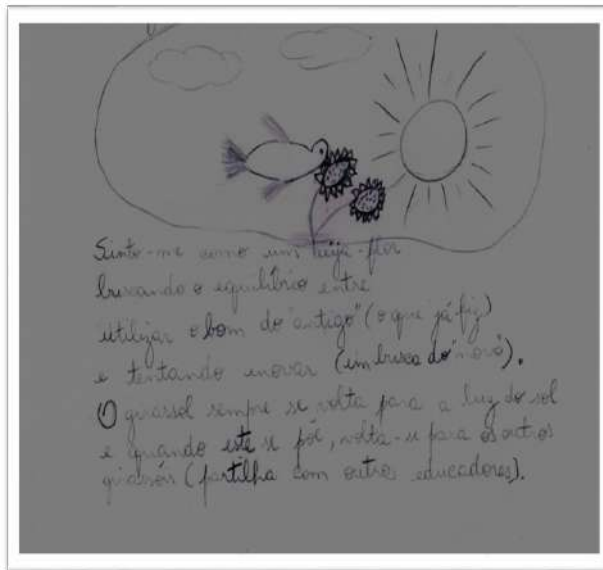 Sinto-me como um beija-flor
buscando o equilíbrio entre
utilizar o bom do "antigo" (o que já fiz)
e tentando inovar (em busca do "novo").
O girassol sempre se volta para a luz do sol
e quando este se põe, volta-se para os outros
girassóis (partilha com outros educadores).